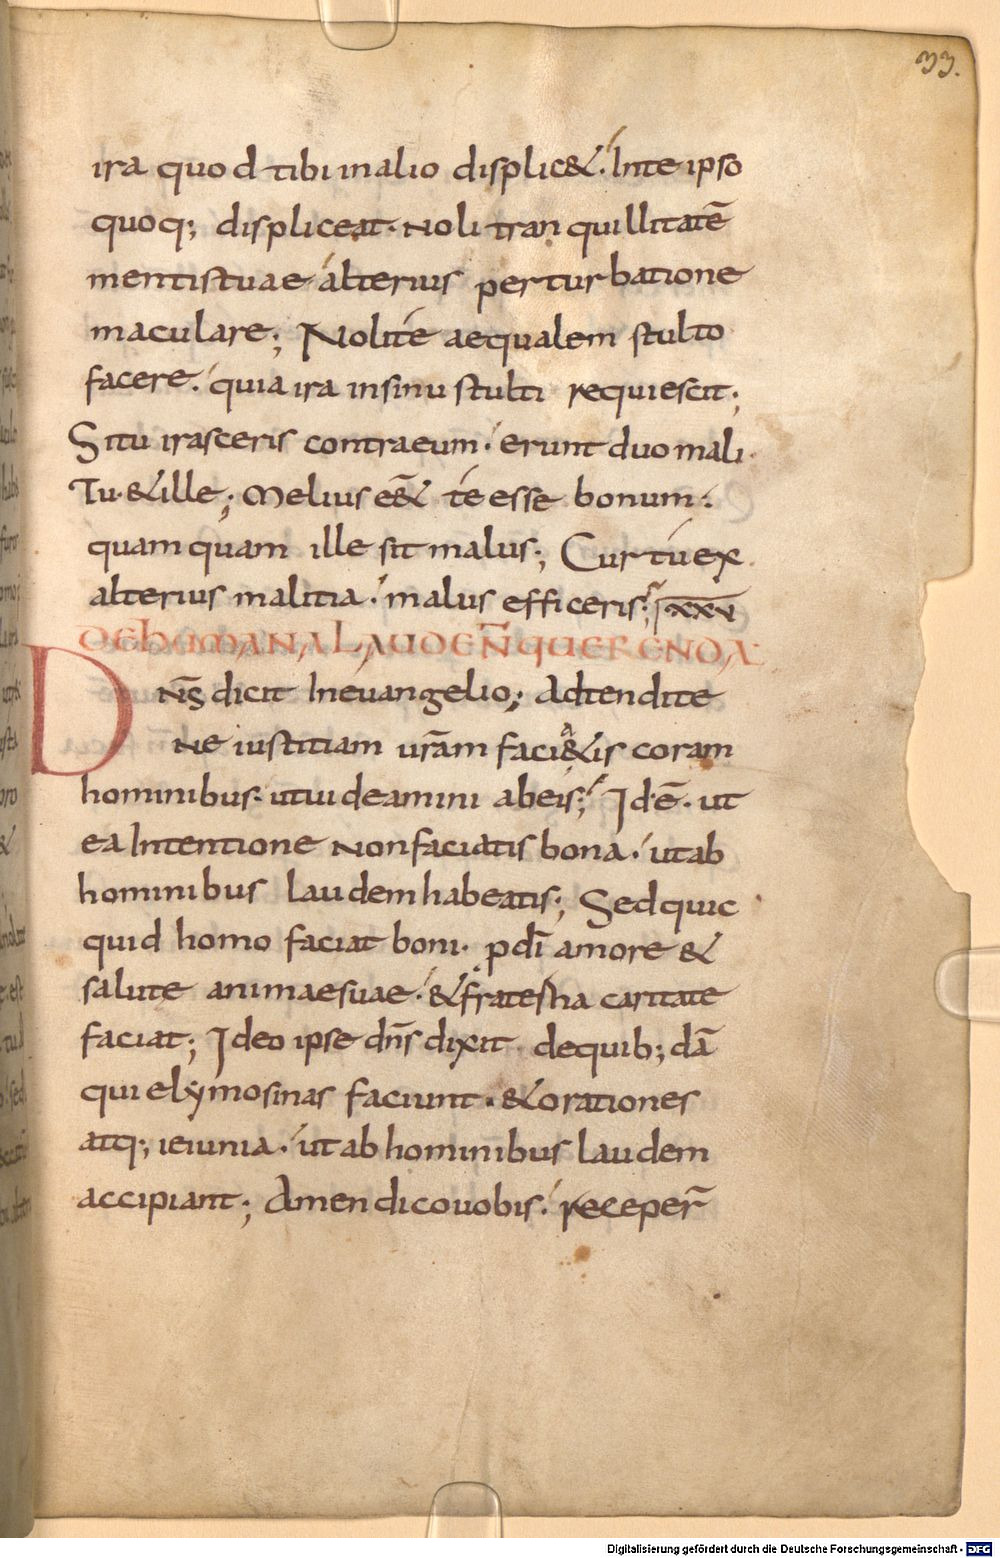 33.
ira quod tibi in alio displic&. In te ipso
quoq; displiceat. Noli tranquillitatē
mentis tuae alterius perturbatione
maculare; Noli te aequalem stulto
facere. quia ira in sinu stulti requiescit;
Si tu irasceris contra eum. erunt duo mali.
Tu. & ille; Melius ē & te esse bonum.
quamquam ille sit malus; Cur tu ex
alterius malitia. malus efficeris; xxxv
DE hUMANA LAUDE Ñ QUERENDA
DN̄S dicit In evangelio; Adtendite
Ne iustitiam ur̄am faci&is coram
hominibus. ut uideamini ab eis; Id ē. ut
ea Intentione Non faciatis bona. ut ab
hominibus laudem habeatis; Sed quic
quid homo faciat boni. p dī amore &
salute animae suae. & fraterna caritate
faciat; Ideo ipse dn̄s dixit de quib; dā
qui elymosinas faciunt. & orationes
atq; ieiunia. ut ab hominibus laudem
accipiant; Amen dico uobis. receper̄
Digitalisierung gefördert durch die Deutsche Forschungsgemeinschaft - DFG